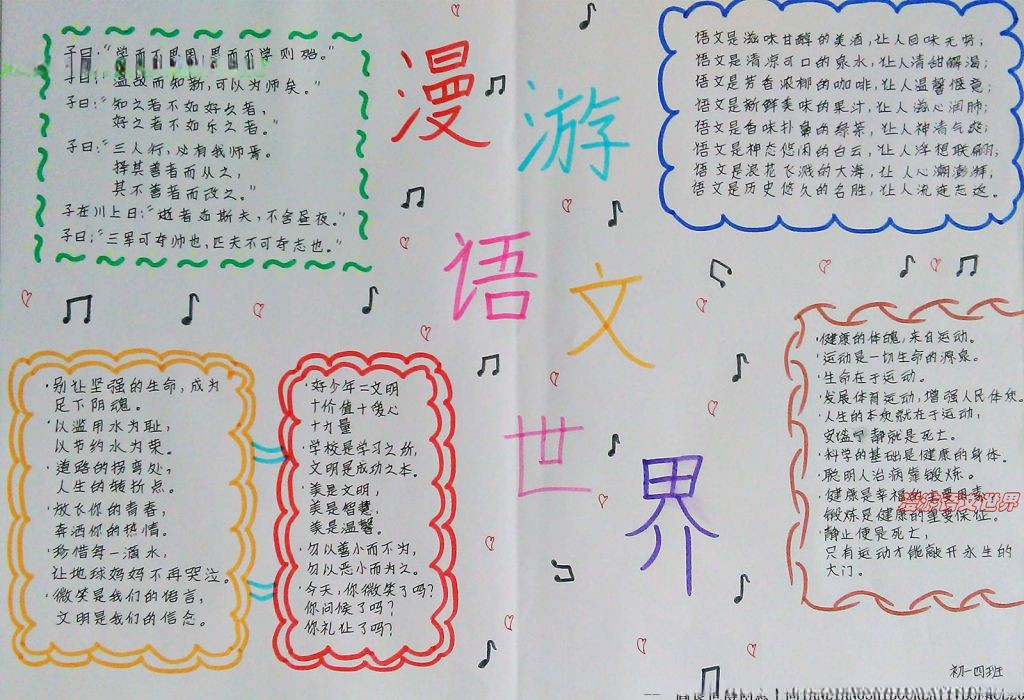 漫游
语文
世界
子曰："学而不思罔,思而不学则殆。"
子曰："温故而知新,可以为师矣。"
子曰："知之者不如好之者,
好之者不如乐之者。"
子曰："三人行,必有我师焉。
择其善者而从之,
其不善者而改之。"
子在川上曰："逝者如斯夫,不舍昼夜。"
子曰："三军可夺帅也,匹夫不可夺志也。"
语文是滋味甘醇的美酒,让人回味无穷；
语文是清凉可口的泉水,让人清甜解渴；
语文是芳香浓郁的咖啡,让人温馨惬意；
语文是新鲜美味的果汁,让人滋心润肺；
语文是香味扑鼻的绿茶,让人神清气爽；
语文是神态悠闲的白云,让人浮想联翩；
语文是浪花飞溅的大海,让人心潮澎湃；
语文是历史悠久的名胜,让人流连忘返。
·别让坚强的生命,成为
足下阴魂。
·以滥用水为耻,
以节约水为荣。
·道路的拐弯处,
人生的转折点。
·放飞你的青春,
奔洒你的热情。
·珍惜每一滴水,
让地球妈妈不再哭泣。
·微笑是我们的语言,
文明是我们的信念。
·好少年=文明
+价值+爱心
+力量
·学校是学习之所,
文明是成功之本。
·美是文明,
美是智慧,
美是温馨。
·勿以善小而不为,
勿以恶小而为之。
·今天,你微笑了吗?
你问候了吗?
你礼让了吗?
·健康的体魄,来自运动。
·运动是一切生命的源泉。
·生命在于运动。
·发展体育运动,增强人民体质。
·人生的本质就在于运动,
安谧宁静就是死亡。
·科学的基础是健康的身体。
·聪明人治病靠锻炼。
·健康是幸福的主要因素,
锻炼是健康的重要保证。
·静止便是死亡,
只有运动才能敲开永生的
大门。
漫游语文世界
初一四班